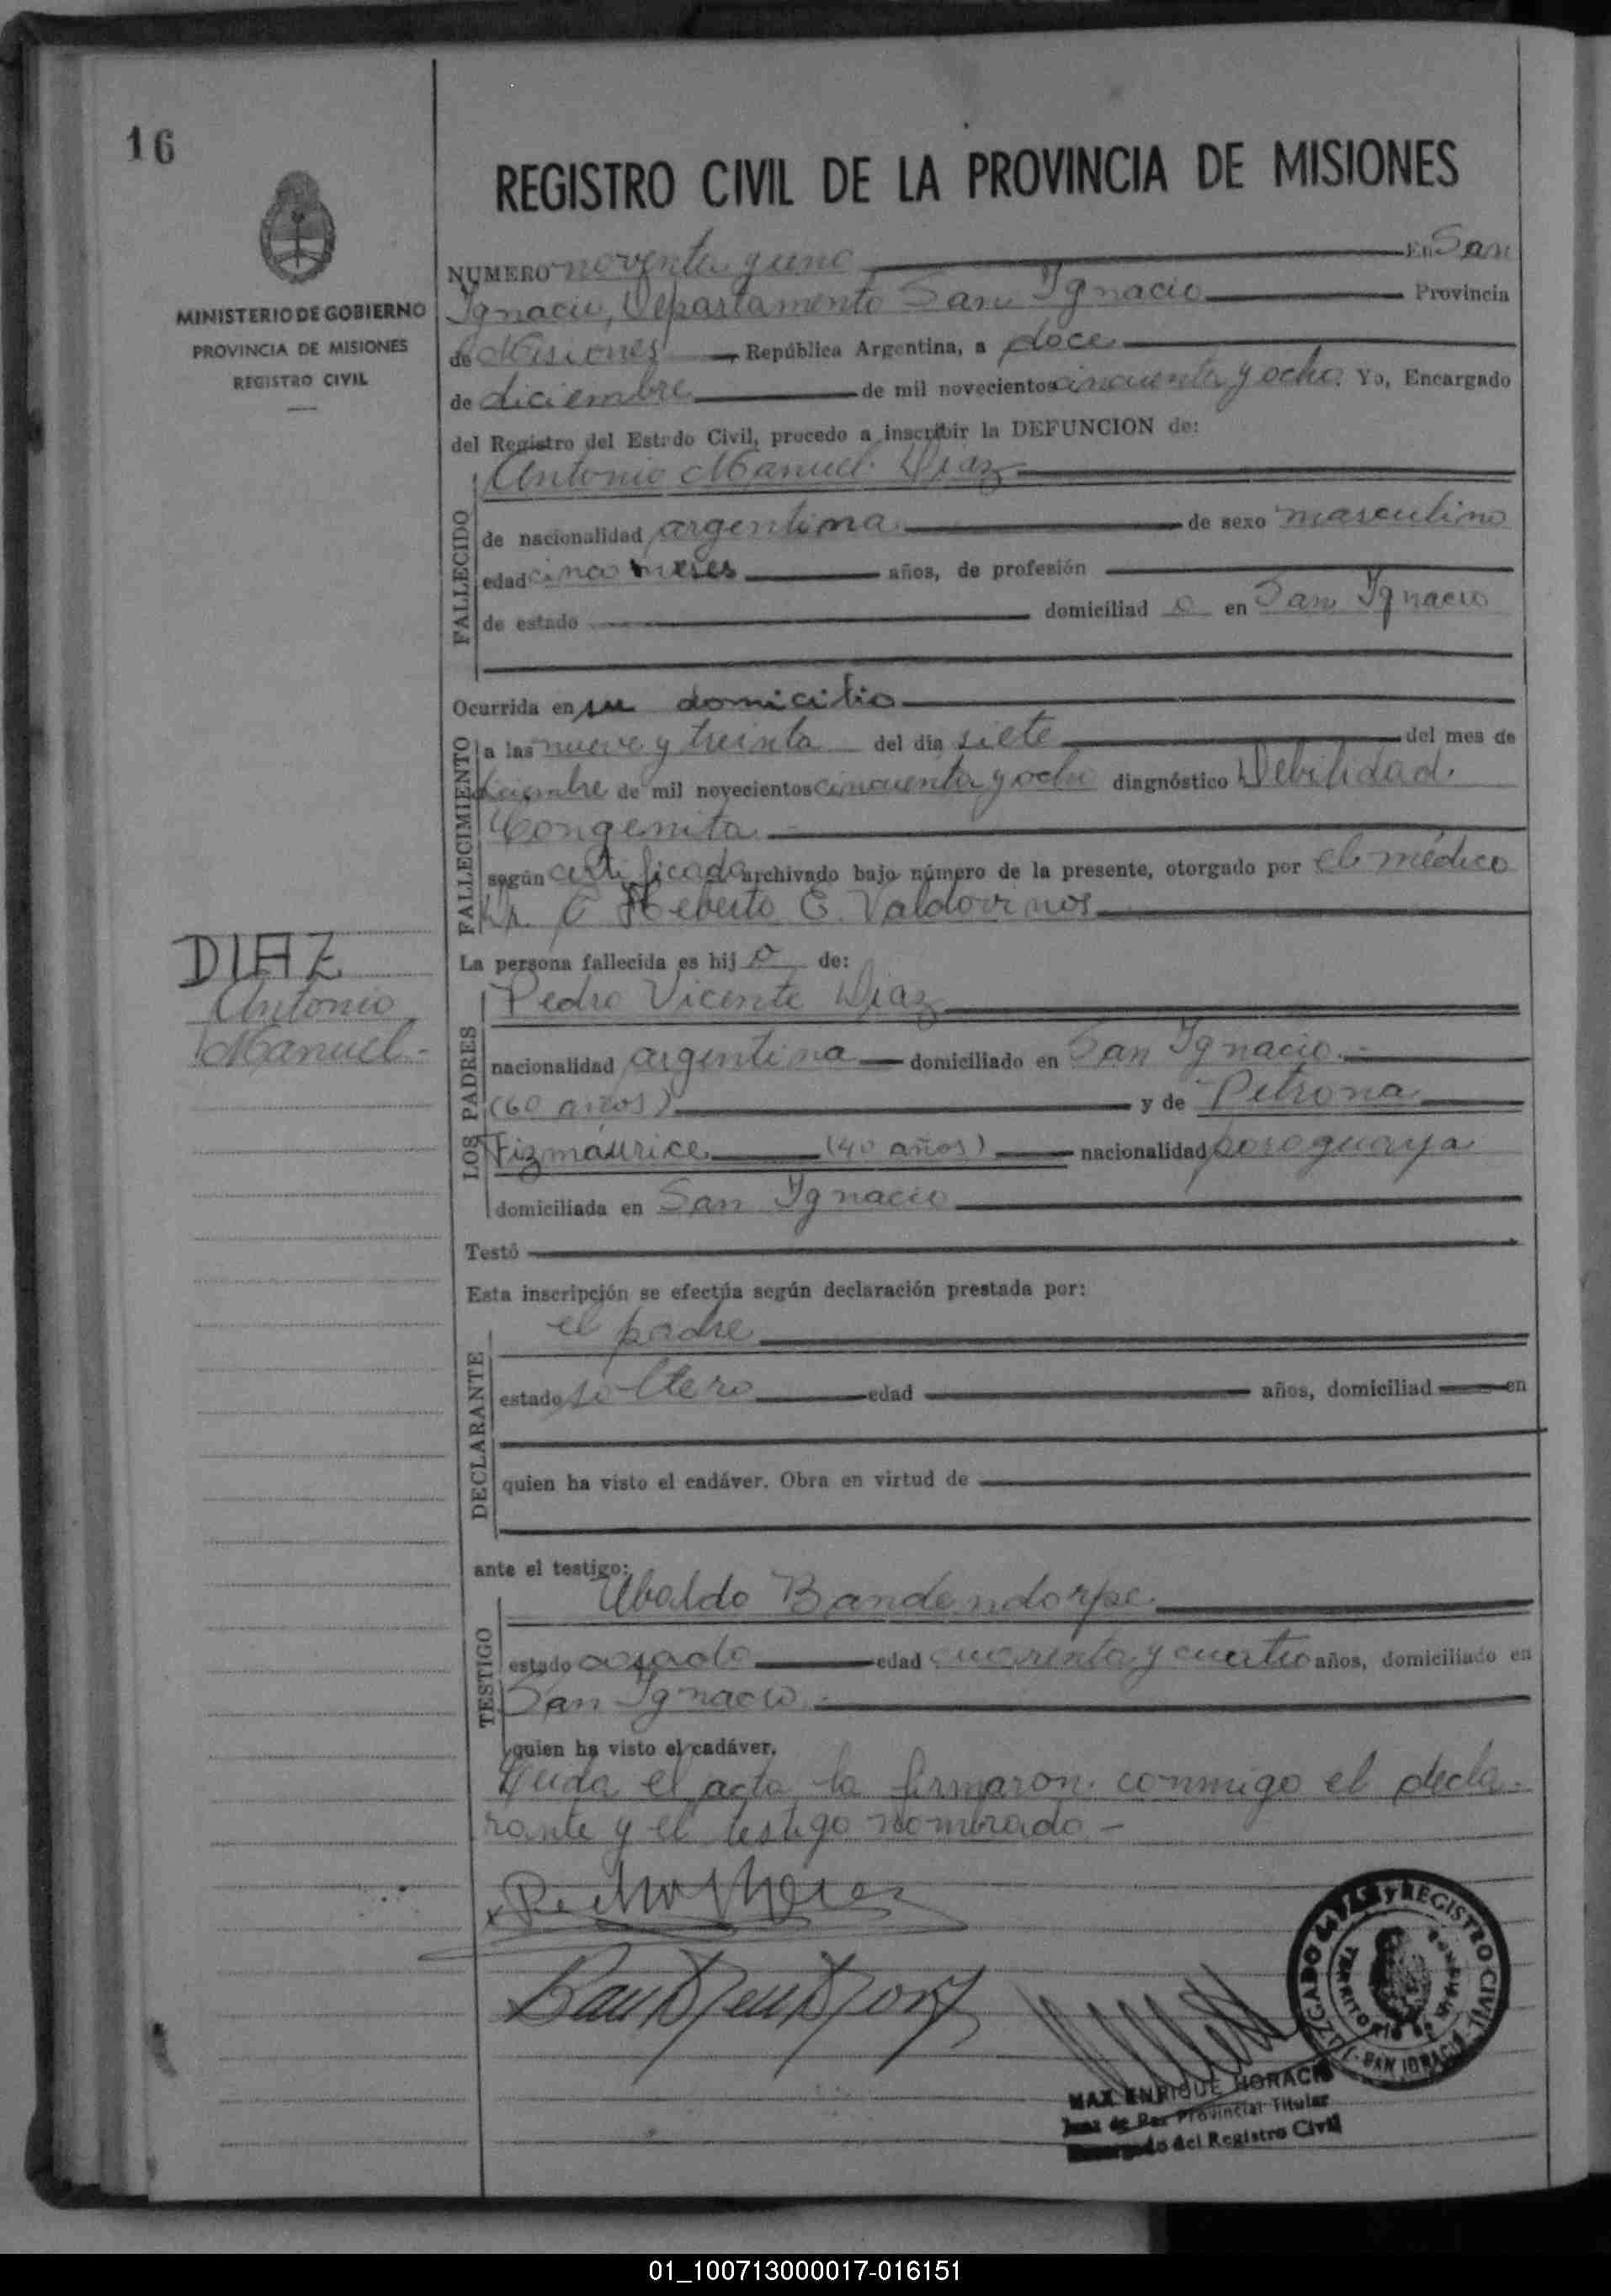 16
REGISTRO CIVIL DE LA PROVINCIA DE MISIONES
MINISTERIO DE GOBIERNO
PROVINCIA DE MISIONES
REGISTRO CIVIL
NUMERO noventa y uno En San
Ignacio, Departamento San Ignacio Provincia
de Misiones República Argentina, a doce
de diciembre de mil novecientos cincuenta y ocho. Yo, Encargado
del Registro del Estado Civil, procedo a inscribir la DEFUNCION de:
Antonio Manuel Diaz
FALLECIDO
de nacionalidad argentina de sexo masculino
edad cinco meses años, de profesión
de estado domiciliad o en San Ignacio
Ocurrida en su domicilio
FALLECIMIENTO
a las nueve y treinta del día siete del mes de
diciembre de mil novecientos cincuenta y ocho diagnóstico Debilidad
Congenita
según certificado archivado bajo número de la presente, otorgado por el médico
Dr. Heberto E. Valdovinos
DIAZ
Antonio
Manuel
La persona fallecida es hij o de:
LOS PADRES
Pedro Vicente Diaz
nacionalidad argentina domiciliado en San Ignacio
(60 años) y de Petrona
Fizmaurice (40 años) nacionalidad paraguaya
domiciliada en San Ignacio
Testó
Esta inscripción se efectúa según declaración prestada por:
DECLARANTE
el padre
estado soltero edad años, domiciliad en
quien ha visto el cadáver. Obra en virtud de
ante el testigo:
TESTIGO
Ubaldo Bandendorpe
estado casado edad cuarenta y cuatro años, domiciliado en
San Ignacio
quien ha visto el cadáver.
Leida el acta la firmaron conmigo el decla-
rante y el testigo nombrado -
JUZGADO DE PAZ Y REGISTRO CIVIL
SAN IGNACIO
TERRITORIO DE MISIONES
MAX ENRIQUE HORACIO
Juez de Paz Provincial Titular
Encargado del Registro Civil
01_100713000017-016151